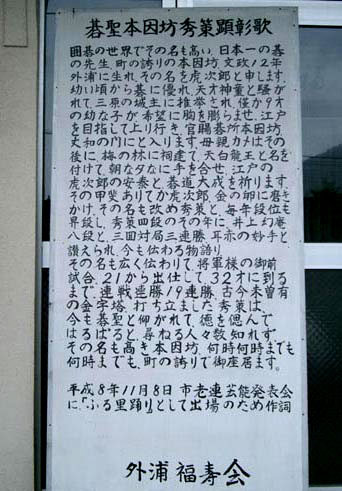 碁聖本因坊秀策顕彰歌
囲碁の世界でその名も高い、日本一の碁
の先生、町の誇りの本因坊、文政12年
外浦に生れ、その名を虎次郎と申します。
幼い頃から碁に優れ、天才神童と騒が
れて、三原の城主に推挙され、僅か9才
の幼な子が希望に胸を膨らませ、江戸
を目指して上り行き、官賜碁所本因坊、
丈和の門にと入ります。母親カメはその
後に、梅の林に祠建て、天白龍王と名を
付けて、朝な夕なに手を合せ、江戸の
虎次郎の安泰と、碁道大成を祈ります。
その甲斐ありてか虎次郎、金の卵に磨き
かけ、その名も改め秀策と、毎年段位も
昇段し、秀策四段のその年に、井上幻庵
八段と、三回対局三連勝、耳赤の妙手と
讃えられ、今も伝わる物語り、
その名も広く伝わりて、将軍様の御前
試合、21から出仕して32才に到る
まで、連戦連勝19連勝、古今未曽有
の金字塔、打ち立ました秀策は、
今も碁聖と仰がれて、徳を偲んで
はるばると、尋ねる人々数知れず
その名も高き本因坊、何時何時までも
何時までも、町の誇りで御座居ます。
平成8年11月8日 市老連芸能発表会
に「ふる里踊り」として出場のため作詞
外浦福寿会